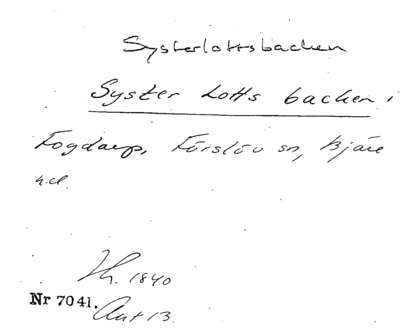 Systerlottsbacken
Syster Lotts backen i
Fogdarp, Förslöv sn, Bjäre
hd.
Lh. 1840
Nr 7041.
Ant 13.